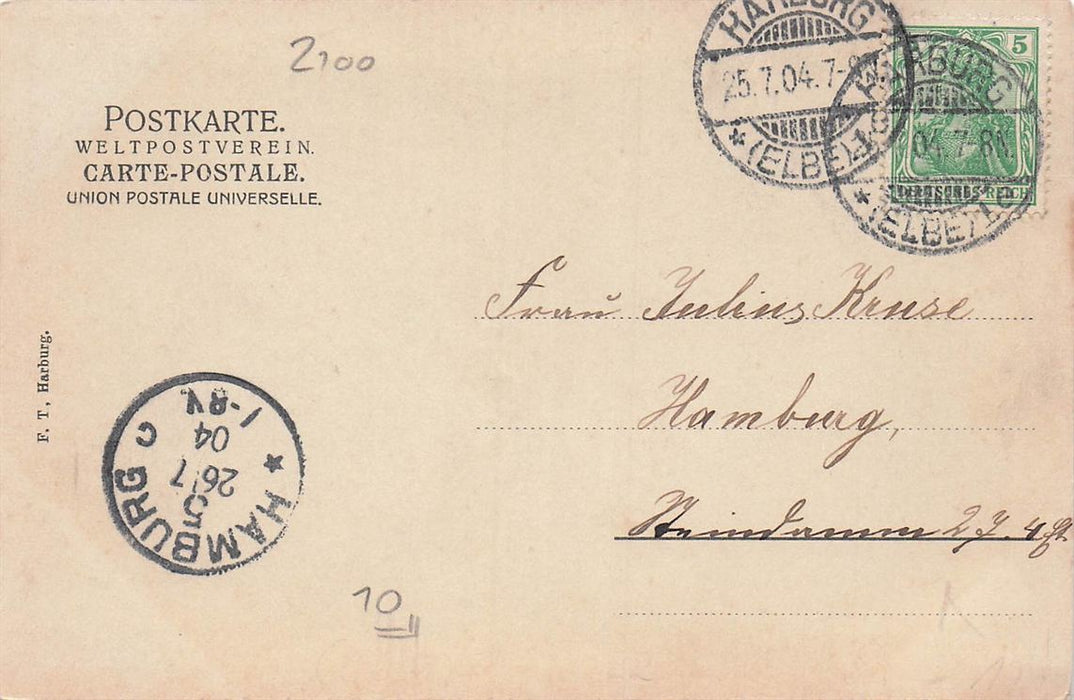 2100
POSTKARTE.
WELTPOSTVEREIN.
CARTE-POSTALE.
UNION POSTALE UNIVERSELLE.
HARBURG
25.7.04.7-8N.
* (ELBE) 1 *
HARBURG
04.7-8N.
* (ELBE) 1 c
5
DEUTSCHES REICH
Frau Julius Kruse
Hamburg,
Steindamm 27. 4 Et.
F. T., Harburg.
* HAMBURG C
5
26/7
04
1-8V.
10